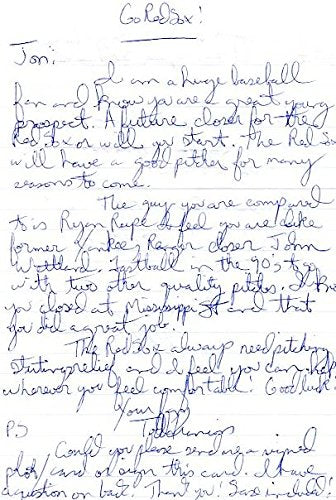 Go Red Sox!
Jon:
I am a huge baseball
fan and know you are a great young
prospect. A future closer for the
Red Sox or will you start. The Red Sox
will have a good pitcher for many
seasons to come.
The guy you are compared
to is Ryan I feel you are like
former Yankee, Ranger closer John
Wetteland. Fastball in the 90's to go
with two other quality pitches. I know
you closed at Mississippi St and that
you did a great job.
The Red Sox always need pitching
starting relief and I feel you can help
wherever you feel comfortable! Good luck!
Your
PS
Could you please send me a signed
photo/card or sign this card. I have
a question on back. Thank you! Sase included